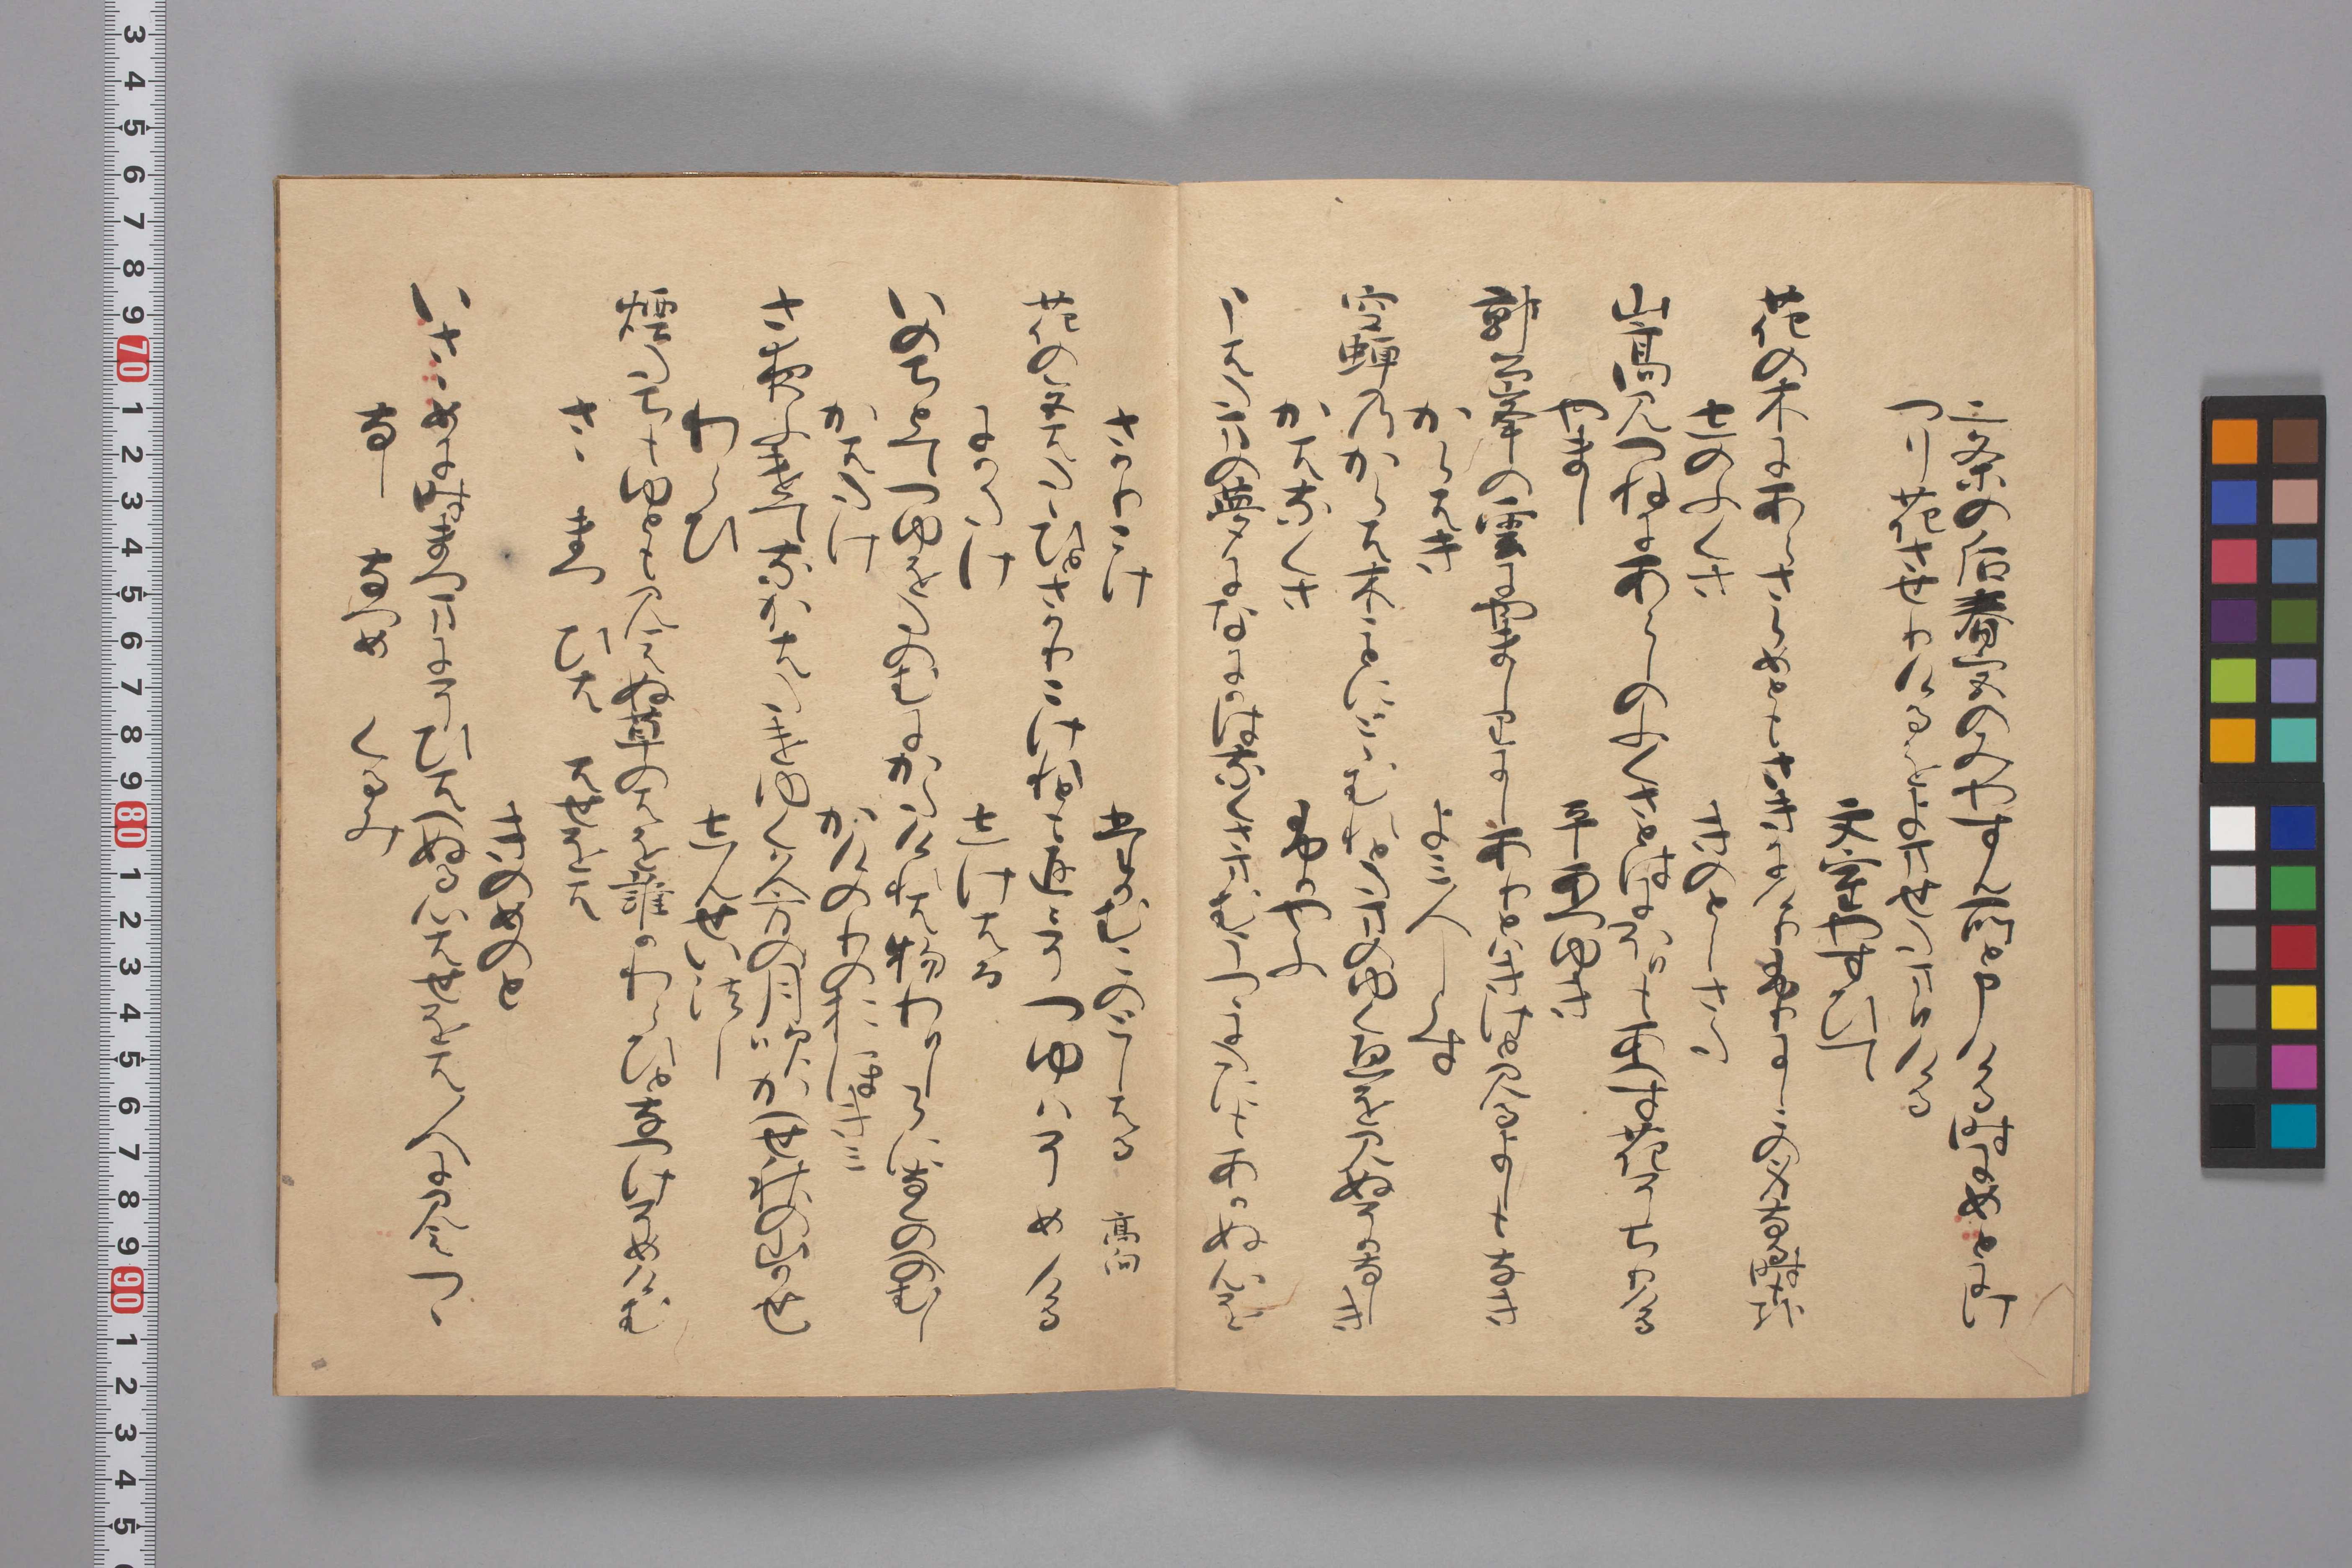 二条の后春宮のみやすん所と申ける時にめとに
けつり花させりけるをよませたまひける
文屋やすひて
花の木にあらさらめともさきにけりふりにしこのみなる時もかな
しのふくさ　きのとしさた
山高みつねに嵐のふくさとはにほひもあへす花そちりける
やまし　平あつゆき
郭公みねの雲にやましりにしありとはきけとみるよしもなき
からはき　よみ人しらす
空蝉のからは木ことにととむれとたまのゆくゑをみぬそかなしき
かはなくさ　ふかやふ
うはたまの夢になにかはなくさまむうつつにたにもあかぬ心は
さかりこけ　たかむこのとしはる
花の色はたたひとさかりこけれとも返々そ露はそめける
にかたけ　しけはる
いのちとて露をたのむにかたけれは物わひしらになくのへのむし
かはたけ　かけのりのおほきみ
さ夜ふけてなかはたけゆく久方の月ふきかへせ秋の山風
わらひ　しんせい法し
煙たちもゆともみえぬ草のはをたれかわらひとなつけそめけむ
ささ　まつ　ひは　はせをは
きのめのと
いささめに時まつまにそひはへぬる心はせをは人にみえつつ
なし　なつめ　くるみ